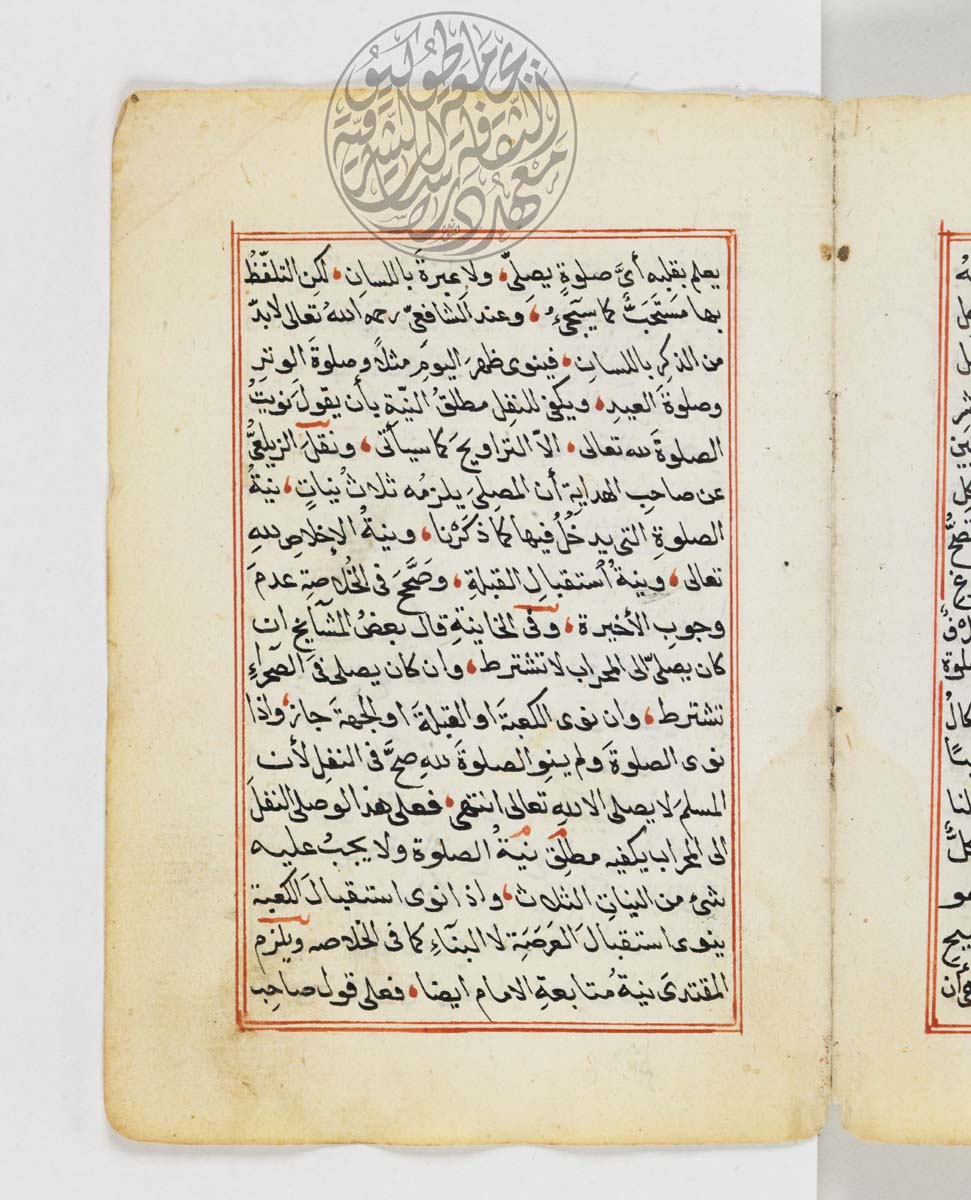 يعلم بقلبه أىَّ صلوةٍ يصلّى، ولا عبرةَ باللسانِ، لكن التلفّظُ
بها مستَحَبٌّ كما يسيجئُ، وعند الشافعىّ رحمه اللهُ تعالى لابدّ
من الذكرِ باللسانِ، فينوى ظهرَ اليومِ مثلاً وصلوةَ الوتر
وصلوةَ العيدِ، ويكفى للنفلِ مطلقُ النيّةِ بأن يقولَ نويتُ
الصلوةَ لله تعالى، الاّ التراويحَ كما سيأتى، ونقلَ الزيلعىُّ
عن صاحبِ الهدايةِ أن المصلىَ يلزمُه ثلاثُ نياتٍ، نيةُ
الصلوةِ التى يدخُلُ فيها كما ذكَرْنا، ونيةُ الإخلاصِ للهِ
تعالى، ونيةُ أستقبالِ القبلةِ، وصَحَّحَ فى الخُلاصةِ عدمَ
وجوبِ الأخيرة، وفى الخانيةِ قال بعضُ المشآيخِ ان
كان يصلىّ الى المحراب لا تشترط، وان كان يصلى فى الصحراءِ
تشترط، وان نوى الكعبةَ او القبلةَ او الجهةَ جاز، واذا
نوى الصلوةَ ولم ينوِ الصلوةَ للهِ صحَّ فى النفلِ لأن
المسلمَ لا يصلى الا للهِ تعالى انتهى، فعلى هذا لو صلى النفلَ
الى المحرابِ يكفيه مطلقُ نيةُ الصلوة ولا يجبُ عليه
شئ من النياتِ الثلاث، واذا نوى استقبالَ الكعبة
ينوى استقبالَ العَرصَةِ لا البنآءِ كما فى الخلاصه ويلزم
المقتدىَ نيةُ مُتابعةِ الامام ايضا، فعلى قول صاحب